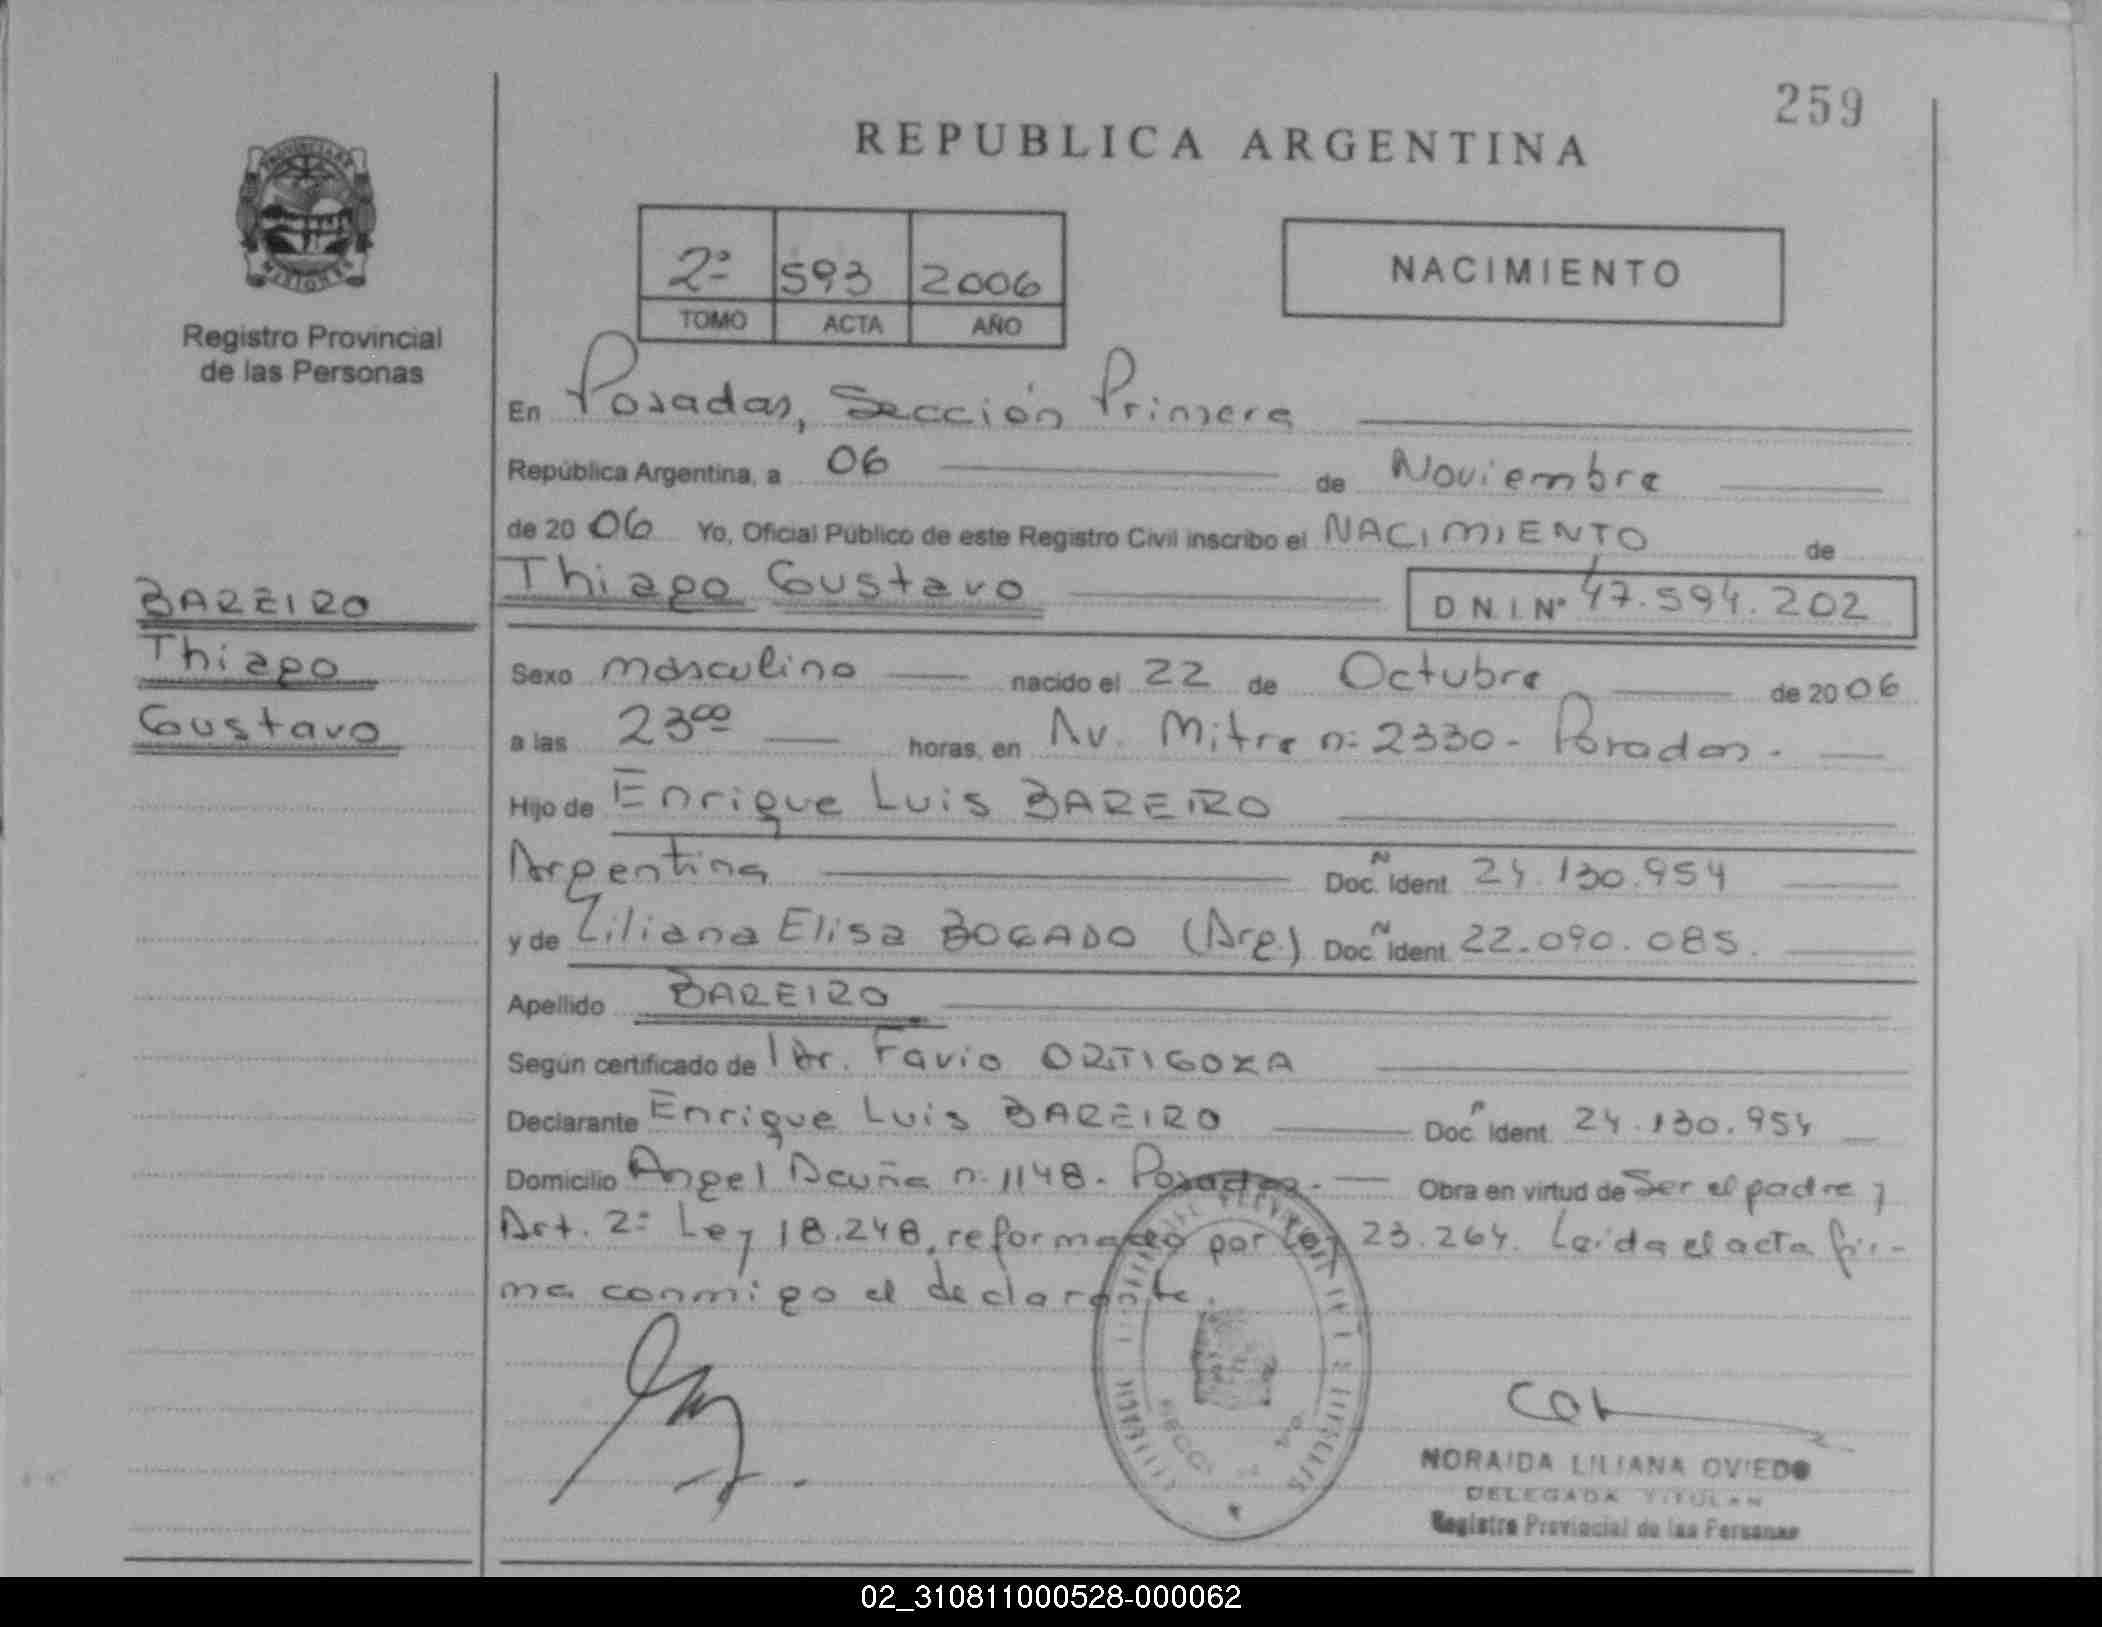 259
REPUBLICA ARGENTINA
PROVINCIA DE
MISIONES
Registro Provincial
de las Personas
2º 593 2006
TOMO ACTA AÑO
NACIMIENTO
En Posadas, Sección Primera
República Argentina, a 06 de Noviembre
de 20 06 Yo, Oficial Público de este Registro Civil inscribo el NACIMIENTO de
Thiago Gustavo D.N.I. Nº 47.594.202
BAREIRO
Thiago
Gustavo
Sexo masculino nacido el 22 de Octubre de 20 06
a las 23⁰⁰ horas, en Av. Mitre nº 2330 - Posadas.
Hijo de Enrique Luis BAREIRO
Argentina Doc. Ident. 24.130.954
y de Liliana Elisa BOGADO (Arg.) Doc. Ident. 22.090.085.
Apellido BAREIRO
Según certificado de Dr. Favio ORTIGOZA
Declarante Enrique Luis BAREIRO Doc. Ident. 24.130.954
Domicilio Angel Acuña n. 1148. Posadas. Obra en virtud de Ser el padre y
Art. 2º Ley 18.248, reformado por Ley 23.264. Leída el acta fir-
ma conmigo el declarante.
NORAIDA LILIANA OVIEDO
DELEGADA TITULAR
Registro Provincial de las Personas
02_310811000528-000062